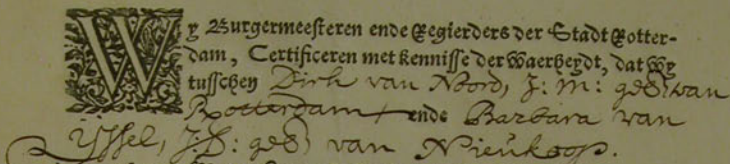 Wy Burgermeesteren ende Regierders der Stadt Rotter-
dam, Certificeren met kennisse der Waerheydt, dat Wy
tusschen Dirk van Noord, J: M: geb: van
Rotterdam ende Barbara van
Yssel, J: D: geb: van Nieukoop.